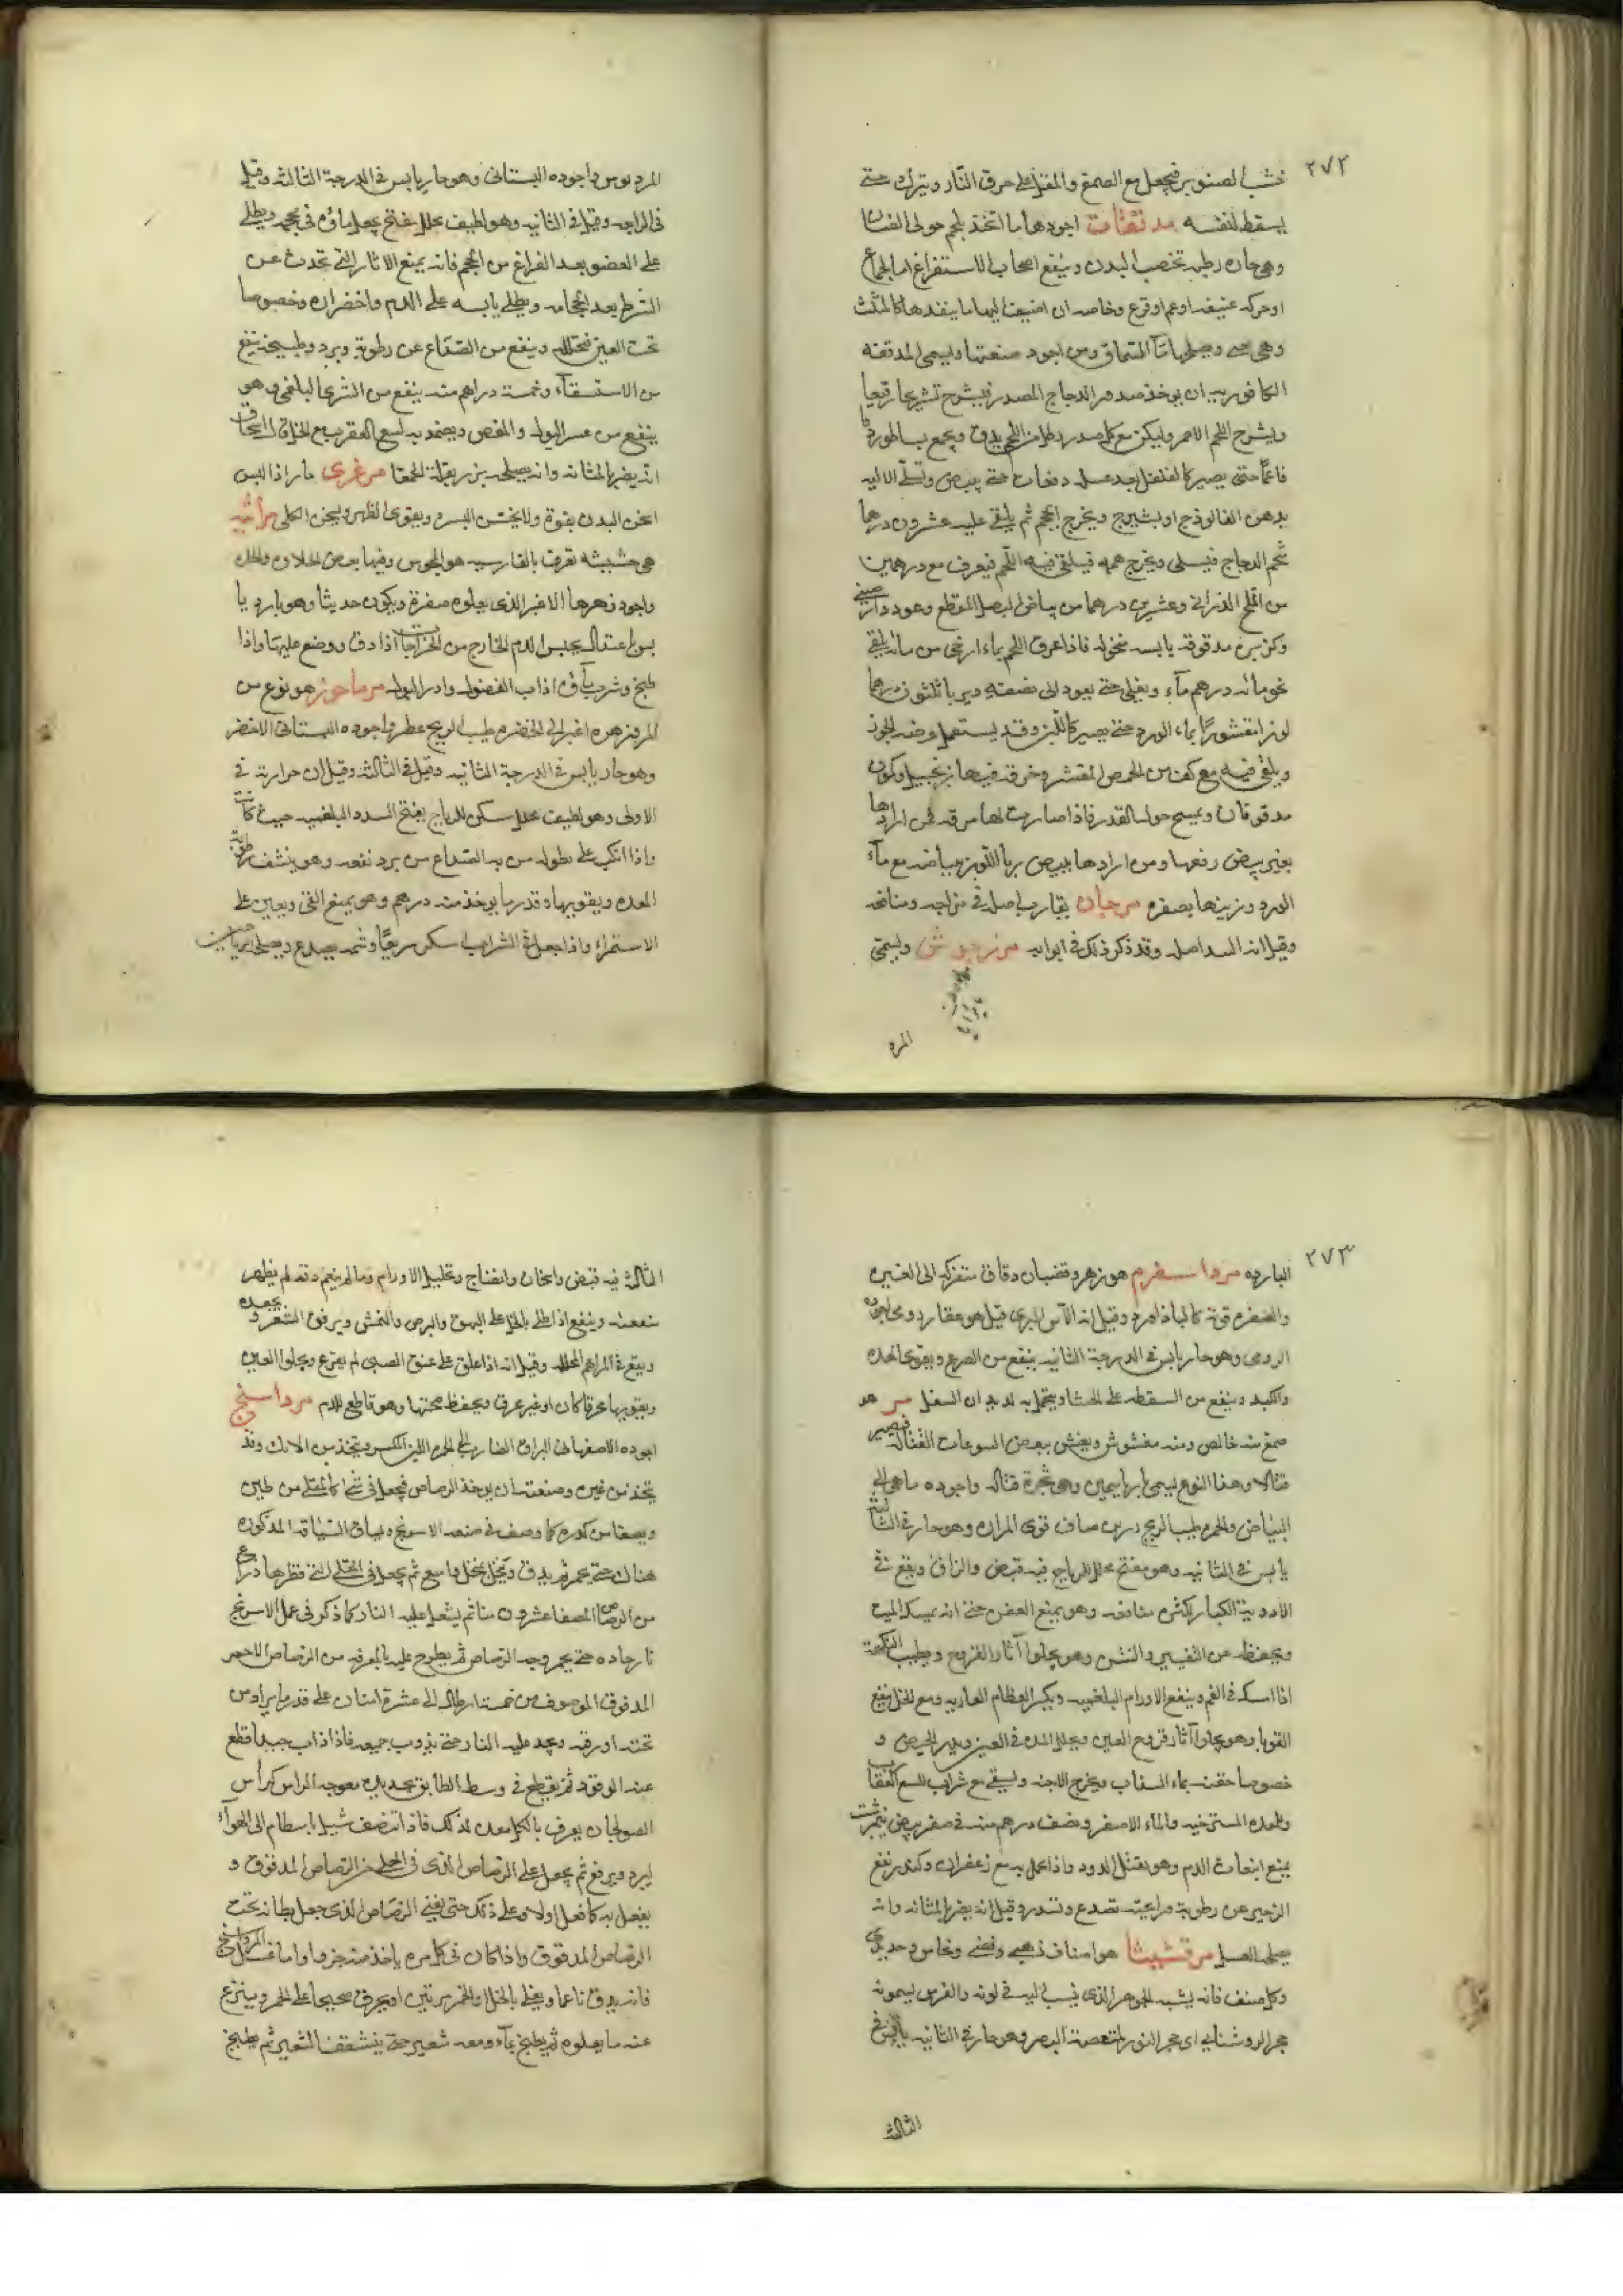 ٢٧٢
خشب الصنوبر فيجعل مع الصمغ والمقل على حرق النار ويترك حتى
يسقط لنفسه مدققات اجودها ما اتخذ بلحم حولى الضان
وهى حاره رطبه تخصب البدن وينفع اصحاب الاستفراغ اما لجماع
او حركه عنيفه او غم او قرع وخاصه ان اضيف اليها ما ينفذها كالمثلث
وهى حبس ويصلحها ماء السماق ومن اجود صنعتها وليسمى المدققه
الكافوريه ان يوخذ صدور الدجاج المصدر فيشرح تشريحا رقيقا
ويشرح اللحم الاحمر وليكن مع كل صدر رطل من اللحم يدق ويجمع بساطور دقا
ناعما حتى يصير كالفلفل بعد غسل دفعات حتى يبيض وتسلى الاليه
بدهن الفالوذج او بشيرج ويخرج الحجم ثم يلقى عليه عشرون درهما
شحم الدجاج فيسلى ويخرج حممه فيلقى فيه اللحم فيعرق مع درهمين
من الملح الدرانى وعشرين درهما من بياض البصل المقطع وعود دارصينى
وكزبره مدقوقه يابسه منخوله فاذا عرق اللحم بماء ارخى من مائه يلقى
نحو مائه درهم ماء ويغلى حتى يعود الى نصفه ويربا ثلثون درهما
لوزا مقشورا بماء الورد حتى يصير كاللبن وقد يستعمل عوضه الجوز
ويلقى فيه مع كف من الحمص المقشر وخرقه فيها زنجبيل وكمون
مدقوقان ويمسح حول القدر فاذا صارت لها مرقه فمن ارادها
بغير بيض رفعها ومن ارادها ببيض ربا اللوز ببياضه مع ماء
الورد وزينها بصفره مرجان يقارب اصل فى مزاجه ومنافعه
وقيل انه البسد اصله وقد ذكر ذلك فى ابوابه مرزنجوش وليسمى
المرد
المردبوس واجوده البستانى وهو حار يابس فى الدرجة الثالثه وقيل
فى الرابعه وقيل فى الثانيه وهو لطيف محلل مفتح يجعل ماؤه فى محجمه ويطلى
على العضو بعد الفراغ من الحجم فانه يمنع الاثار التى تحدث عن
الشرط بعد الحجامه ويطلى يابسه على الدم واخضراره وخصوصا
تحت العين فيحلله وينفع من الصداع عن رطوبة وبرد وطبيخه ينفع
من الاستسقاء وخمسة دراهم منه ينفع من الشرى البلغمى وهو
ينفع من عسر البول والمغص ويضمد به لسع العقرب مع الخل قال اسحاق
انه يضر بالمثانه وانه يصلحه بزر بقلة الحمقا مرغزى ما راذا لبس
اسخن البدن بقوة ولا يخشن البشره ويقوى الظهر ويسخن الكلى مرانيه
هى حشيشه تعرف بالفارسيه هو المجوس وفيها بعض الحلاوه والحده
واجود زهرها الاغبر الذى يعلوه صفرة ويكون حديثا وهو بارد يا
بس باعتدال يحبس الدم الخارج من الجراحات اذا دق ووضع عليها واذا
طبخ وشرب ماؤه اذاب الفضول وادر البول مرماحوز هو نوع من
المرو زهره اغبر الى الخضره طيب الريح عطر واجوده البستانى الاخضر
وهو حار يابس فى الدرجة الثانيه وقيل فى الثالثه وقيل ان حرارته فى
الاولى وهو لطيف محلل مسكن للرياح يفتح السدد البلغميه حيث كانت
واذا انكب على نطوله من به الصداع من برد نفعه وهو ينشف رطوبة
المعده ويقويها وقدر ما يوخذ منه درهم وهو يمنع القى ويعين على
الاستمراء واذا جعل فى الشراب اسكر سريعا وشمه يصدع ويصلحه الرياحين
٢٧٣
البارده مرداسفرم هو زهر وقضبان دقاق متفركه الى الغبره
والصفره قوته كالباذاورد وقيل انه الآس البرى قيل هو عقار دوى اجوده
الرومى وهو حار يابس فى الدرجة الثانيه ينفع من الصرع ويقوى المعده
والكبد وينفع من السقطه على الحشا ويتحمل به لديدان السفل مر هو
صمغ منه خالص ومنه مغشوش ويغش ببعض اليتوعات القتاله فيصير
قتالا وهذا النوع ليسمى باراسيمين وهى شجرة قتاله واجوده ما هو الى
البياض والحمره طيب الريح رزين صاف قوى المراره وهو حار فى الثالثه
يابس فى الثانيه وهو مفتح محلل للرياح فيه قبض والزاق ويقع فى
الادويه الكبار لكثره منافعه وهو يمنع العفن حتى انه يمسك الميت
ويحفظه من التغيير والنتن وهو يجلوا آثار القروح ويطيب النكهة
اذا امسك فى الفم وينفع الاورام البلغميه ويكسر العظام العاريه ومع الخل ينفع
القوبا وهو يجلوا آثار قروح العين ويحلل المده فى العين ويدر الحيض و
خصوصا حقنه بماء السذاب ويخرج الاجنه ويسقى مع شراب للسع العقارب
والمعده المسترخيه والماء الاصفر ونصف درهم منه فى صفر بيض نيمرشت
يمنع انبعاث الدم وهو يقتل الدود واذا عمل به مع زعفران وكندر نفع
الزحير عن رطوبة ورائحته تصدع وتسدر وقيل انه يضر بالمثانه وانه
يصلحه العسل مرقشيشا هو اصناف ذهبى وفضى ونحاسى وحديدى
وكل صنف فانه يشبه الجوهر الذى ينسب اليه فى لونه والفرس ليسمونه
حجر الروشنايى اى حجر النور لمنفعته البصر وهو حار فى الثانيه يابس فى
الثالثه
الثالثه فيه قبض واسخان وانضاج وتحليل الاورام وما لم ينعم دقه لم يظهر
منفعته وينفع اذا طلى بالخل على البهق والبرص والنمش ويرقق الشعر ويجعده
ويقع فى المراهم المحلله وقيل انه اذا علق على عنق الصبى لم يفزع ويجلوا العين
ويقويها محرقا كان او غير محرق ويحفظ صحتها وهو قاطع للدم مرداسنج
اجوده الاصفهانى البراق الضارب الى الحمره اللين المكسر ويتخذ من الانك وقد
يتخذ من غيره وصنعته ان يوخذ الرصاص فيجعل فى شى كالمقلى من طين
ويصفا من كدره كما وصف فى صنعه الاسرنج ويساق السياقه المذكوره
هناك حتى يحمر ثم يدق وينخل بمنخل واسع ثم يجعل فى المقلى التى قطرها ذراع
من الرصاص المصفا عشرون منا ثم ليشعل عليه النار كما ذكر فى عمل الاسرنج
نار حاده حتى يحمر وجه الرصاص ثم يطرح عليه بالمغرفه من الرصاص الاحمر
المدقوق الموصوف من خمسة ارطال الى عشرة امنان على قدر ما يراد من
تخنه او رقه ويجد عليه النار حتى يذوب جميعه فاذا ذاب جيدا قطع
عنه الوقود ثم يقطع فى وسط الطابق بحديده معوجه الراس كرأس
الصولجان يعرف بالكل معده لذلك فاذا تنصف شيل باسطام الى الهواء
ليبرد ويرفع ثم يجعل على الرصاص الذى فى المقلى من الرصاص المدقوق و
يفعل به كما فعل اولا وعلى ذلك حتى يفنى الرصاص الذى جعل بطانه تحت
الرصاص المدقوق واذا كان فى كل مره ياخذ منه جزوا واما غسل المرداسنج
فانه يدق ناعما ويغلى بالخل والخمر مرتين او يحرق صحيحا على الجمر وينزع
عنه ما يعلوه ثم يطبخ بماء ومعه شعير حتى ينشقق الشعير ثم يطبخ